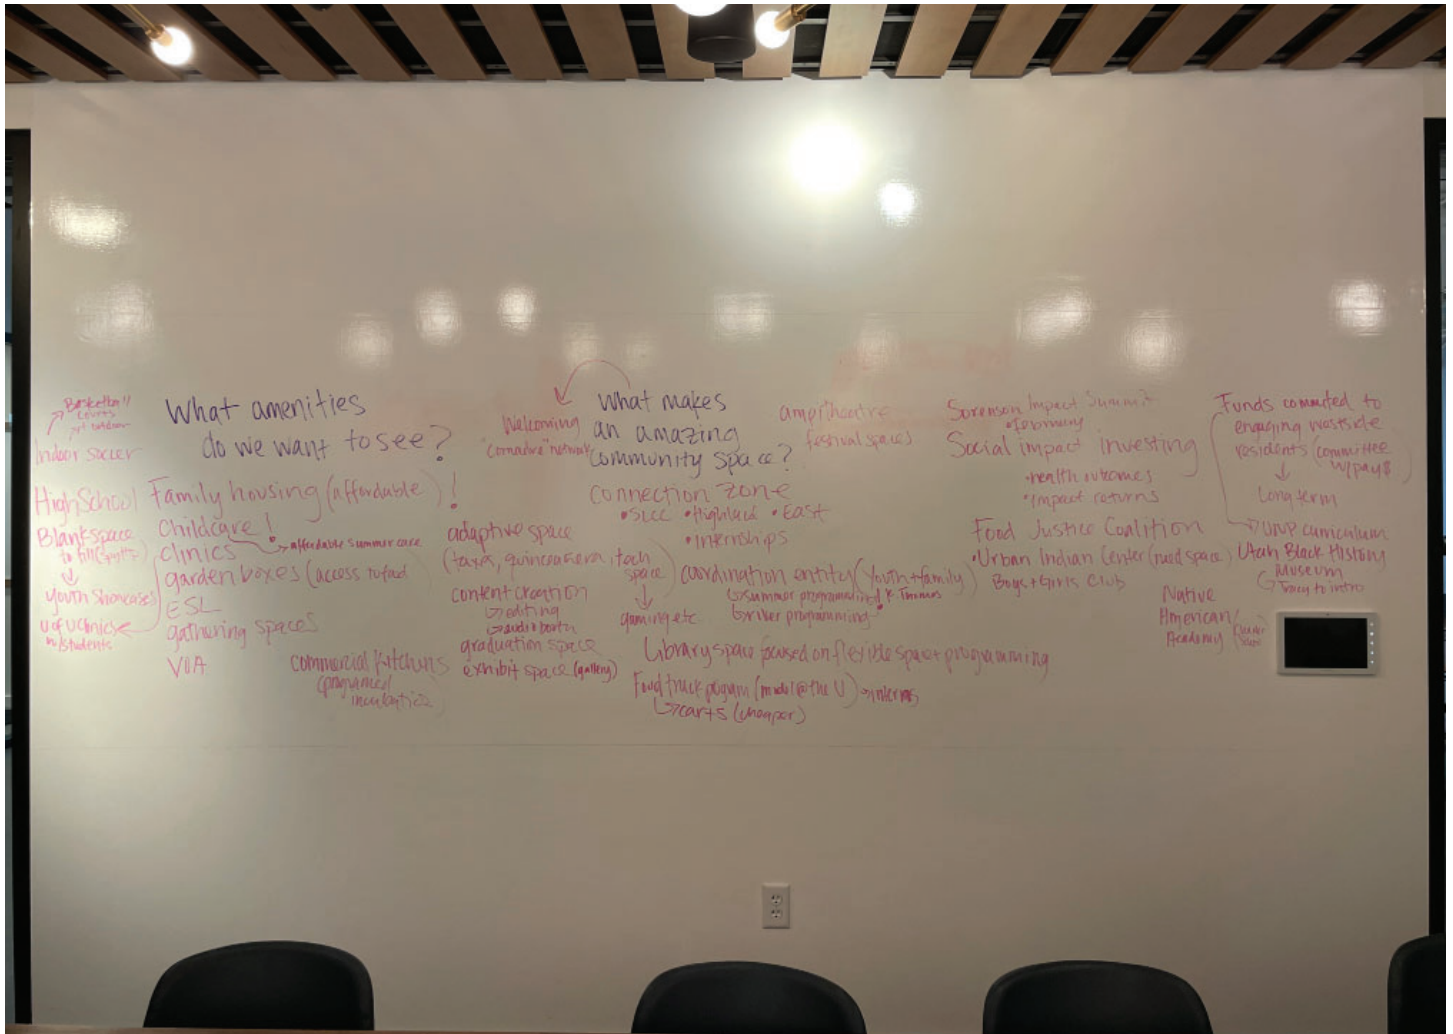 Basketball
courts
Indoor soccer
High School
Blank space
to fill
youth showcases
U of U clinics
w/students
What amenities
do we want to see?
Family housing (affordable) !
Childcare !
affordable summer care
clinics
garden boxes (access to food)
ESL
gathering spaces
VOA
commercial kitchens
(programed/
incubation)
Welcoming
network
adaptive space
(taxes, quinceanera, tech
space)
gaming etc.
content creation
editing
audio booth
graduation space
exhibit space (gallery)
What makes
an amazing
community space?
connection zone
• SLCC • Highland • East
• internships
coordination entity (youth + family)
summer programming
river programming
Library space focused on flexible space + programming
Food truck program (model @ the U) → interns
carts (cheaper)
ampitheatre
festival spaces
Sorenson Impact Summit
• february
Social impact investing
• health outcomes
• impact returns
Food Justice Coalition
• Urban Indian Center (need space)
Boys + Girls Club
Funds commited to
engaging westside
residents (committee
w/pay $)
Long term
UNP curriculum
Utah Black History
Museum
Tracy to intro
Native
American
Academy